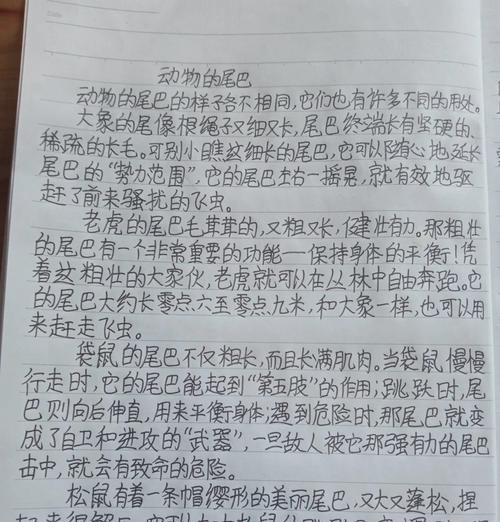 动物的尾巴
动物的尾巴的样子各不相同,它们也有许多不同的用处。
大象的尾像根绳子又细又长,尾巴终端长有坚硬的、
稀疏的长毛。可别小瞧这细长的尾巴,它可以随心地延长
尾巴的“势力范围”,它的尾巴左右一摇晃,就有效地驱
赶了前来骚扰的飞虫。
老虎的尾巴毛茸茸的,又粗又长,健壮有力。那粗壮
的尾巴有一个非常重要的功能—保持身体的平衡!凭
着这粗壮的大家伙,老虎就可以在丛林中自由奔跑。它
的尾巴大约长零点六至零点九米,和大象一样,也可以用
来赶走飞虫。
袋鼠的尾巴不仅粗长,而且长满肌肉。当袋鼠慢慢
行走时,它的尾巴能起到“第五肢”的作用;跳跃时,尾
巴则向后伸直,用来平衡身体;遇到危险时,那尾巴就变
成了自卫和进攻的“武器”,一旦敌人被它那强有力的尾巴
击中,就会有致命的危险。
松鼠有着一条帽缨形的美丽尾巴,又大又蓬松,捏